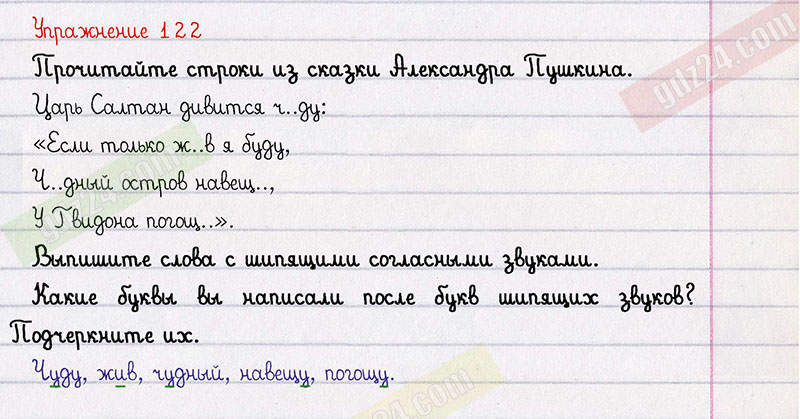 Упражнение 122
gdz24.com
Прочитайте строки из сказки Александра Пушкина.
Царь Салтан дивится ч..ду:
«Если только ж..в я буду,
Ч..дный остров навещ..,
У Гвидона погощ..».
gdz24.com
Выпишите слова с шипящими согласными звуками.
Какие буквы вы написали после букв шипящих звуков?
Подчеркните их.
Чуду, жив, чудный, навещу, погощу.
gdz24.com